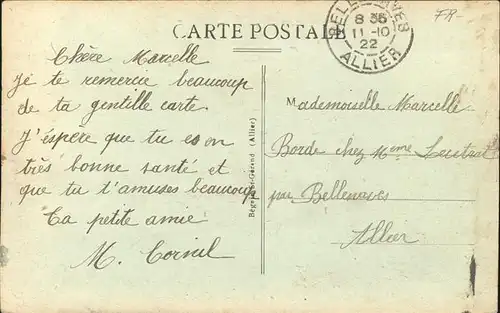 CARTE POSTALE
BELLENAVES
8 35
11-10
22
ALLIER
FR-
Chère Marcelle
Je te remercie beaucoup
de ta gentille carte.
J'espère que tu es en
très bonne santé et
que tu t'amuses beaucoup
Ta petite amie
M.
(Allier)
Mademoiselle Marcelle
Borde chez Mme
par Bellenaves
Allier